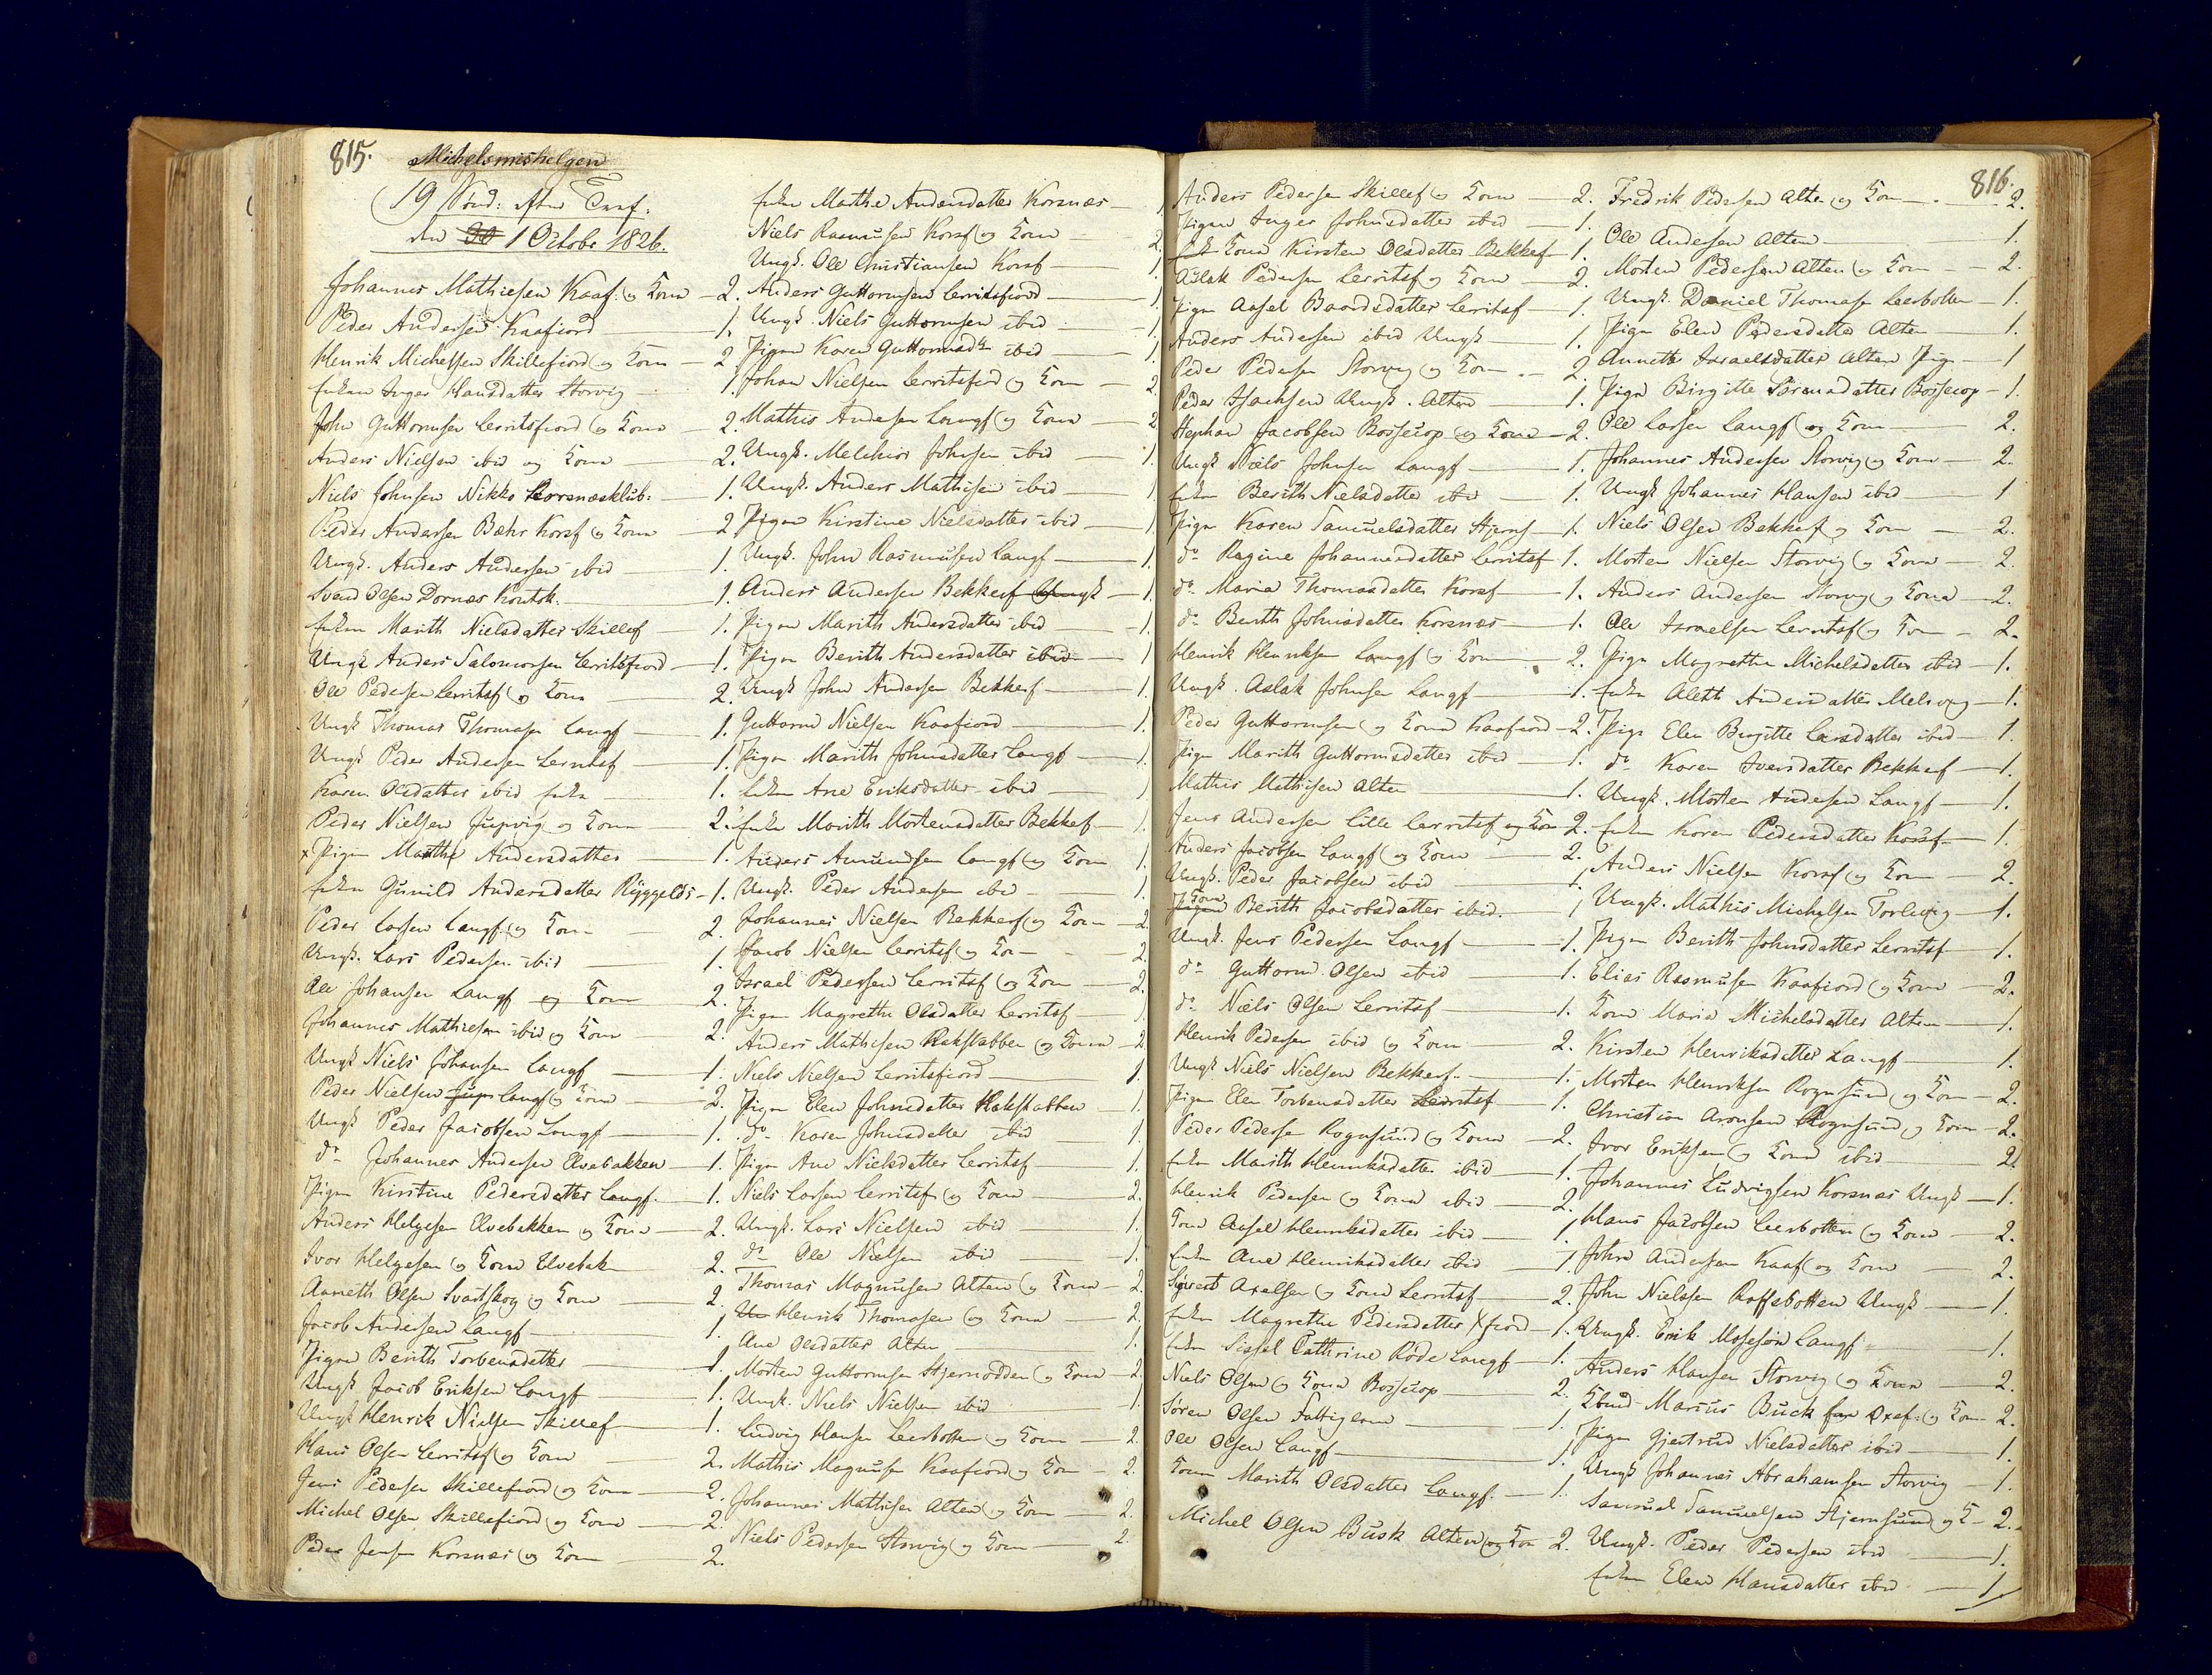 815.
Michelsmishelgen
19 Sønd: efter Trinf:
den 30 1 October 1826.
Johannes Mathiesen Kaaf: og Kone - 2.
Peder Andersen Kaafiord - 1.
Henrik Michelsen Skillefiord og Kone - 2
Enken Inger Hansdatter Storvig 1.
John Guttormsen Lerritsfiord og Kone - 2.
Anders Nielsen ibid og Kone - 2.
Niels Johnsen Nikko Korsnæsklub: - 1.
Peder Andersen Bæhr Korsf og Kone - 2
Ungk. Anders Andersen ibid - 1.
Svend Olsen Dornæs Koutok. - 1.
Enken Marith Nielsdatter Skillef - 1.
Ungk Anders Salomonsen Lerritsfiord - 1.
Ole Pedersen Lerritsf og Kone 2.
Ungk Thomas Thomasen Langf - 1.
Ungk Peder Andersen Lerritsf - 1.
Karen Olsdatter ibid Enke - 1.
Peder Nielsen Jupvig og Kone - 2.
x Pigen Marthe Andersdatter - 1.
Enken Gunild Andersdatter Ryggelds - 1.
Peder Larsen Langf og Kone - 2.
Ungk. Lars Pedersen ibid - 1.
Ole Johansen Langf og Kone 2.
Johannes Mathiesen ibid og Kone - 2.
Ungk Niels Johansen Langf - 1.
Peder Nielsen Jup Langf og Kone - 2.
Ungk Peder Jacobsen Langf - 1.
do Johannes Andersen Elvebakken - 1.
Pigen Kirstine Pedersdatter Langf. - 1.
Anders Helgesen Elvebakken og Kone - 2.
Ivor Helgesen og Kone Elvebak 2.
Anneth Olsen Svartskog og Kone - 2.
Jacob Andersen Langf - 1.
Pigen Berith Torbensdatter - 1.
Ungk Jacob Eriksen Langf - 1.
Ungk Henrik Nielsen Skillef - 1.
Hans Olsen Lerritsf og Kone - 2.
Jens Pedersen Skillefiord og Kone - 2.
Michel Olsen Skillefiord og Kone - 2.
Peder Jensen Korsnæs og Kone - 2.
Enken Marthe Andersdatter Korsnæs - 1
Niels Rasmusen Korsf og Kone - 2.
Ungk. Ole Christiansen Korsf - 1.
Anders Guttormsen Lerritsfiord - 1.
Ungk. Niels Guttormsen ibid - 1
Pigen Karen Guttormsdtr ibid - 1.
Johan Nielsen Lerritsfiord og Kone - 2.
Mathis Andersen Langf og Kone - 2
Ungk. Melchior Johnsen ibid - 1.
Ungk. Anders Mathisen ibid - 1
Pigen Kirstine Nielsdatter ibid - 1.
Ungk. John Rasmusen Langf - 1.
Anders Andersen Bekkerf Ungk - 1.
Pigen Marith Andersdatter ibid - 1.
Pigen Berith Andersdatter ibid - 1
Ungk John Andersen Bekkerf - 1.
Guttorm Nielsen Kaafiord - 1.
Pigen Marith Johnsdatter Langf - 1.
Enken Ane Eriksdatter ibid - 1
Enken Marith Mortensdatter Bekkef - 1.
Anders Amundsen Langf og Kone 1.
Ungk. Peder Andersen ibid - 1
Johannes Nielsen Bekkerf og Kone - 2.
Jacob Nielsen Lerritsf og Ko - 2.
Israel Pedersen Lerritsf og Kone - 2.
Pigen Magrethe Olsdatter Lerritsf - 1
Anders Mathisen Rakstabben og Kone - 2
Niels Nielsen Lerritsfiord - 1
Pigen Elen Johnsdatter Rakstabben 1.
do Karen Johnsdatter ibid - 1
Pigen Ane Nielsdatter Lerritsf - 1.
Niels Larsen Lerritsf og Kone - 2.
Ungk. Lars Nielsen ibid - 1.
do Ole Nielsen ibid - 1.
Thomas Magnusen Alten og Kone - 2.
Un Henrik Thomasen og Kone - 2.
Ane Olsdatter Alten - 1.
Morten Guttormsen Stjernodden og Kone - 2.
Ungk. Niels Nielsen ibid - 1
Ludvig Hansen Leerbotten og Kone - 2.
Mathis Magnusen Kaafiord og Kone - 2.
Johannes Mathisen Alten og Kone - 2.
Niels Pedersen Storvig og Kone - 2
816.
Anders Pedersen Skillef og Kone - 2.
Pigen Inger Johnsdatter ibid - 1.
Enk Kone Kirsten Olsdatter Bekkef - 1.
Aslak Pedersen Lerritsf og Kone - 2.
Pigen Aasel Baardsdatter Lerritsf - 1.
Anders Andersen ibid Ungk - 1.
Peder Pedersen Storvig og Kone - 2
Peder Isachsen Ungk. Alten - 1.
Stephan Jacobsen Bossecop og Kone - 2.
Ungk Niels Johnsen Langf - 1.
Enken Berith Nielsdatter ibid - 1.
Pigen Karen Samuelsdatter Stjernf - 1.
do Ragine Johannesdatter Lerritsf 1.
do Maria Thomasdatter Korsf - 1.
do Berith Johnsdatter Korsnæs - 1.
Henrik Henriksen Langf og Kone - 2.
Ungk. Aslak Johnsen Langf - 1.
Peder Guttormsen og Kone Kaafiord - 2.
Pigen Marith Guttormsdatter ibid - 1.
Mathis Mathisen Alten - 1.
Jens Andersen Lille Lerritsf og Kone 2.
Anders Jacobsen Langf og Kone - 2.
Ungk. Peder Jacobsen ibid - 1.
Pigen Kone Berith Jacobsdatter ibid. - 1
Ungk. Jens Pedersen Langf - 1.
do Guttorm Olsen ibid - 1.
do Niels Olsen Lerritsf - 1.
Henrik Pedersen ibid og Kone - 2.
Ungk. Niels Nielsen Bekkerf - 1.
Pigen Elen Torbensdatter Lerritsf - 1.
Peder Pedersen Rognsund og Kone - 2.
Enken Marith Henriksdatter ibid - 1.
Henrik Pedersen og Kone ibid - 2.
Kone Aasel Henriksdatter ibid - 1.
Enken Ane Henriksdatter ibid - 1.
Sivert Axelsen og Kone Lerritsf - 2.
Enken Magrethe Pedersdatter Xfiord - 1.
Enken Sissel Cathrine Røde Langf - 1.
Niels Olsen og Kone Bossecop - 2.
Søren Olsen Fattiglem - 1.
Ole Olsen Langf - 1
Konen Marith Olsdatter Langf. - 1.
Michel Olsen Busk Alten og Kone 2.
Fredrik Pedersen Alten og Kone - 2.
Ole Andersen Alten - 1.
Morten Pedersen Alten og Kone - 2.
Ungk. Daniel Thomasen Leerbotten - 1.
Pigen Elen Pedersdatter Alten - 1.
Annette Israelsdatter Alten Pige - 1
Pigen Birgitte Sørensdatter Bossecop - 1.
Ole Larsen Langf og Kone - 2.
Johannes Andersen Storvig og Kone - 2.
Ungk Johannes Hansen ibid - 1
Niels Olsen Bekkerf og Kone - 2.
Morten Nielsen Storvig og Kone - 2.
Anders Andersen Storvig og Kone - 2.
Ole Israelsen Lerritsf og Kone - 2.
Pige Magrethe Michelsdatter ibid - 1.
Enken Aleth Andersdatter Melsvig - 1.
Pige Elen Birgitte Larsdatter ibid - 1.
do Karen Iversdatter Bekkef - 1.
Ungk. Morten Andersen Langf - 1.
Enken Karen Pedersdatter Korsf - 1.
Anders Nielsen Korsf og Kone - 2.
Ungk. Mathis Michelsen Torlevig - 1.
Pigen Berith Johnsdatter Lerritsf - 1.
Elias Rasmusen Kaafiord og Kone - 2.
Kone Maria Michelsdatter Alten - 1.
Kirsten Henriksdatter Langf - 1.
Morten Henriksen Rognsund og Kone - 2.
Christian Aronsen Rognsund og Kone - 2.
Ivor Eriksen og Kone ibid - 2.
Johannes Ludvigsen Korsnæs Ungk - 1.
Hans Jacobsen Leerbotten og Kone - 2.
John Andersen Kaaf og Kone - 2.
John Nielsen Rafsbotten Ungk - 1.
Ungk. Erik Mosesøn Langf - 1.
Anders Hansen Storvig og Kone - 2.
Marius Buck Oxef: og Kone 2.
Pigen Gjertrud Nielsdatter ibid - 1.
Ungk Johannes Abrahamsen Storvig - 1.
Samuel Samuelsen Stjernsund og K - 2.
Ungk. Peder Pedersen ibid - 1.
Enken Elen Hansdatter ibid - 1